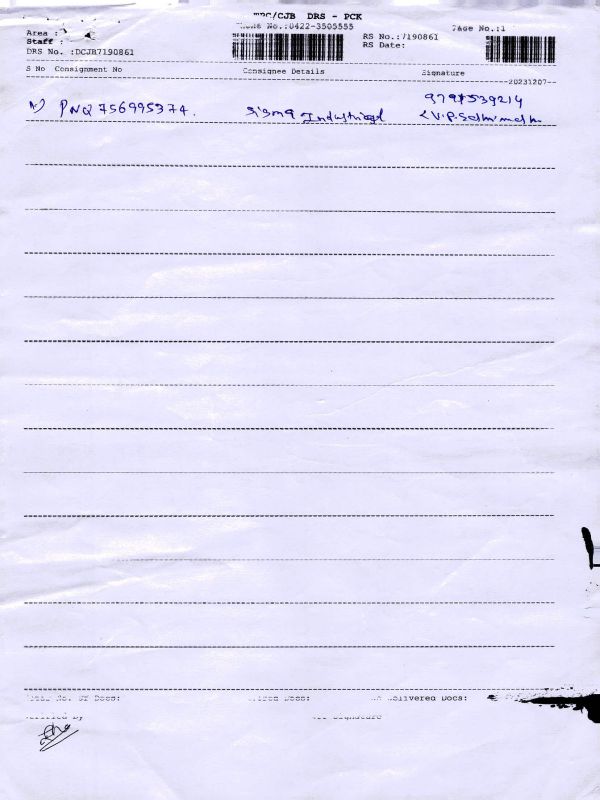 TPC/CJB DRS - PCK
Phone No.:0422-3505555
Area :
Staff :
DRS No. :DCJB7190861
RS No.:7190861
RS Date:
Page No.:1
S No Consignment No Consignee Details Signature
20231207
1) PNQ 756995374. Sigma Industrial
9791539214
Total No. Of Docs: Docs: Delivered Docs:
Verified By Signature